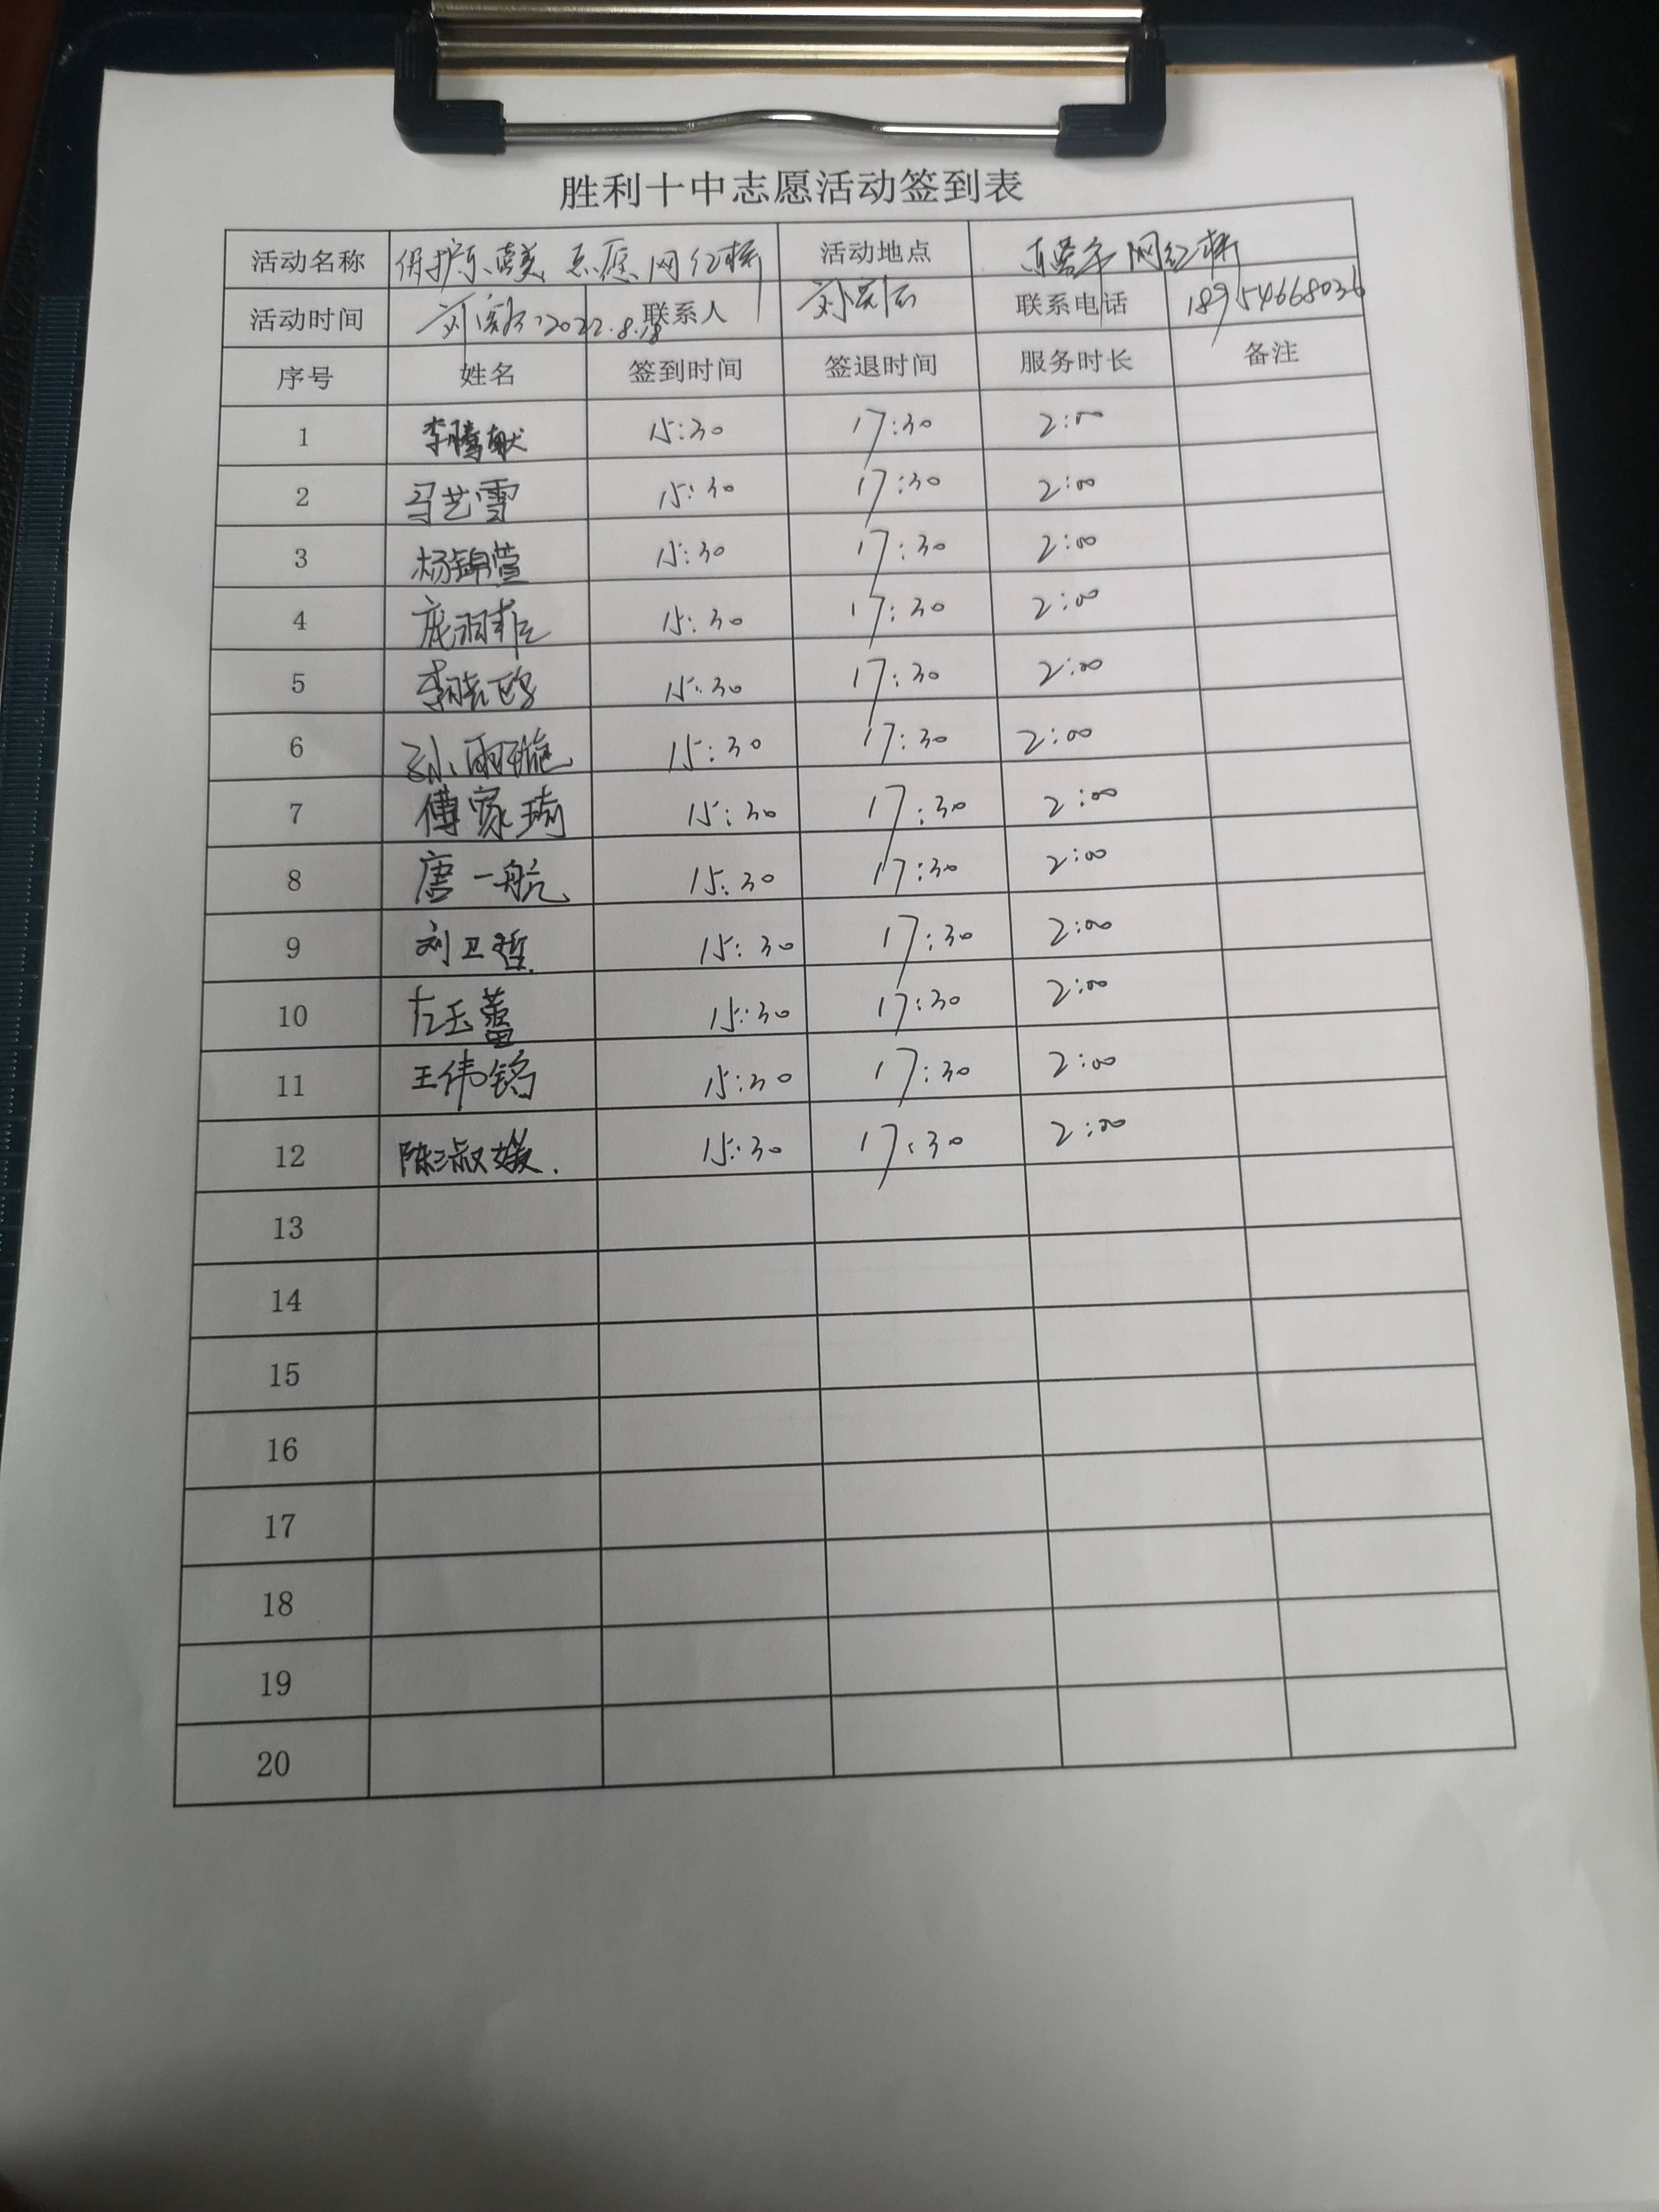 胜利十中志愿活动签到表
活动名称 保护东营美 志愿网红桥 活动地点 东营市网红桥
活动时间 2022.8.18 联系人 联系电话 18954668036
序号 姓名 签到时间 签退时间 服务时长 备注
1 李腾献 15:30 17:30 2:00
2 马艺雪 15:30 17:30 2:00
3 杨锦萱 15:30 17:30 2:00
4 庞羽菲 15:30 17:30 2:00
5 15:30 17:30 2:00
6 孙雨璇 15:30 17:30 2:00
7 傅家琦 15:30 17:30 2:00
8 唐一航 15:30 17:30 2:00
9 刘卫哲 15:30 17:30 2:00
10 左玉蕾 15:30 17:30 2:00
11 王伟铭 15:30 17:30 2:00
12 陈淑媛. 15:30 17:30 2:00
13
14
15
16
17
18
19
20